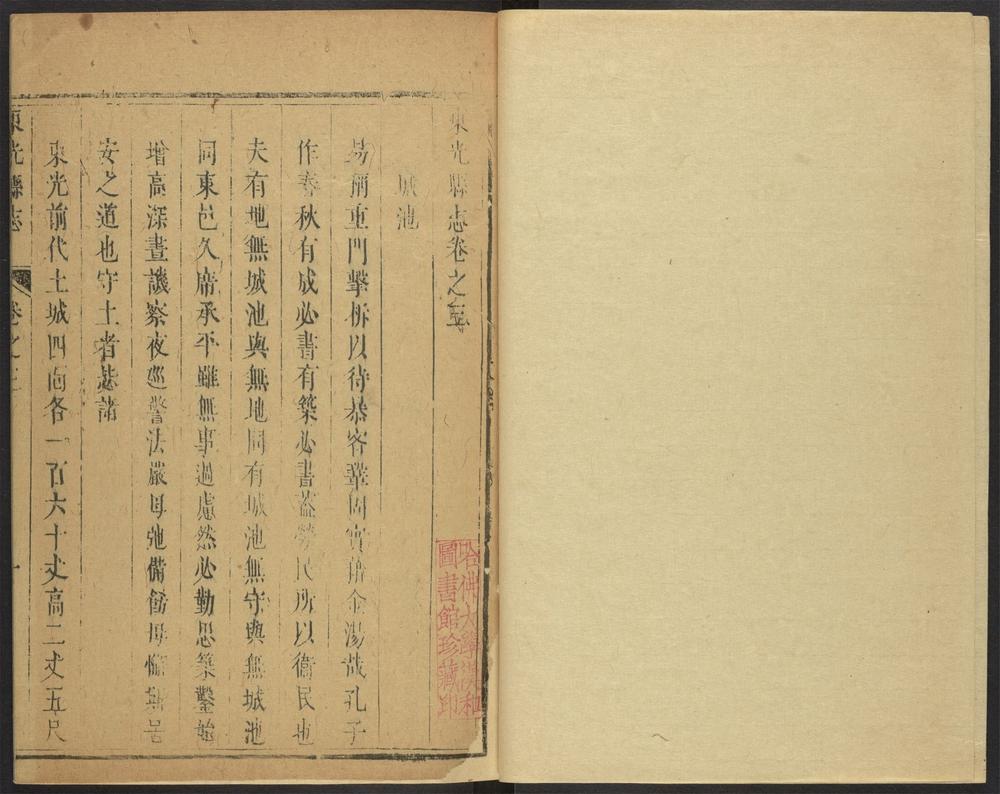 東光縣志卷之三
城池
易稱重門擊柝以待暴客鞏固實藉金湯哉孔子
作春秋有成必書有築必書蓋勞民所以衞民也
夫有地無城池與無地同有城池無守與無城池
同東邑久席承平雖無事過慮然必勤思築鑿始
增高深晝譏察夜巡警法嚴毋弛備飭毋懈斯
安之道也守土者念諸
東光前代土城四面各一百六十丈高二丈五尺
東光縣志
卷之三
一
哈佛大學漢和
圖書館珍藏印